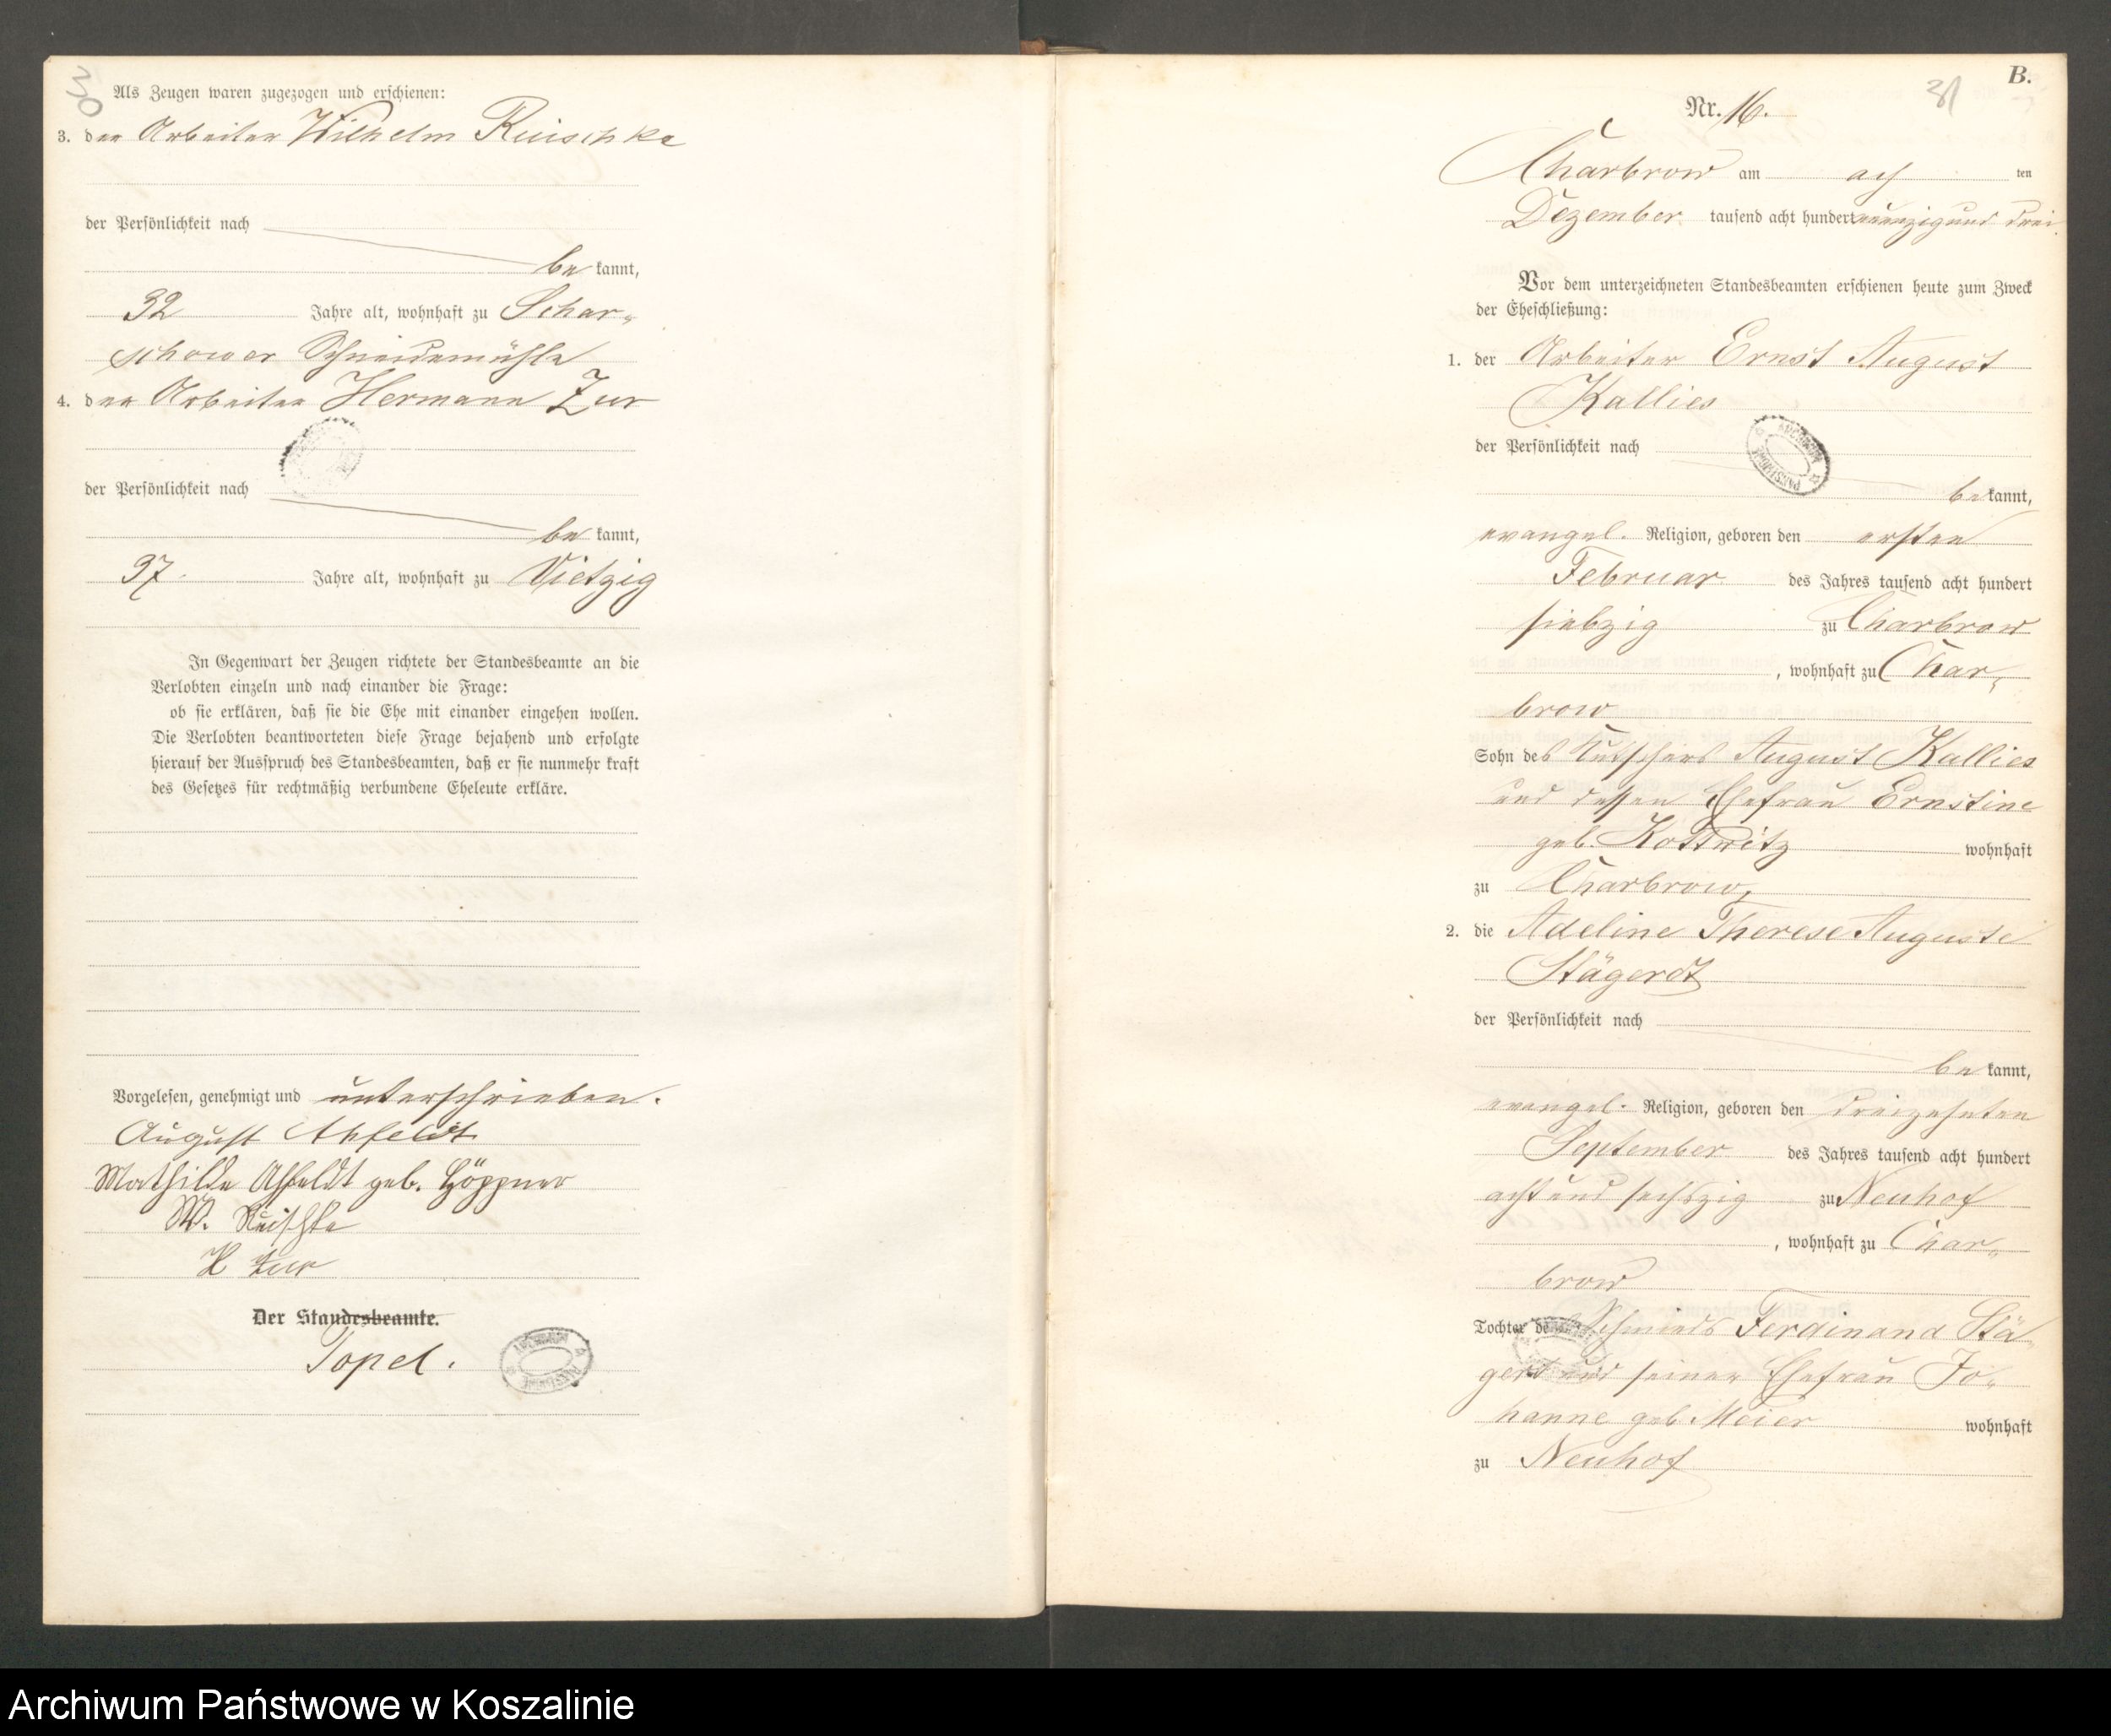 30
Als Zeugen waren zugezogen und erschienen:
3. der Arbeiter Wilhelm Ruischke
der Persönlichkeit nach
be kannt,
32 Jahre alt, wohnhaft zu Schar-
schower Schneidemühle
4. der Arbeiter Hermann Zur
der Persönlichkeit nach
be kannt,
37. Jahre alt, wohnhaft zu Vietzig
In Gegenwart der Zeugen richtete der Standesbeamte an die
Verlobten einzeln und nach einander die Frage:
ob sie erklären, daß sie die Ehe mit einander eingehen wollen.
Die Verlobten beantworteten diese Frage bejahend und erfolgte
hierauf der Ausspruch des Standesbeamten, daß er sie nunmehr kraft
des Gesetzes für rechtmäßig verbundene Eheleute erkläre.
Vorgelesen, genehmigt und unterschrieben.
August Affeldt
Mathilde Affeldt geb. Höppner
W. Ruischke
H Zur
Der Standesbeamte.
Topel.
31
B.
Nr. 16.
Charbrow am ach ten
Dezember tausend acht hundert neunzig und drei.
Vor dem unterzeichneten Standesbeamten erschienen heute zum Zweck
der Eheschließung:
1. der Arbeiter Ernst August
Kallies
der Persönlichkeit nach
be kannt,
evangel. Religion, geboren den ersten
Februar des Jahres tausend acht hundert
siebzig zu Charbrow
, wohnhaft zu Char-
brow
Sohn des Kutschers August Kallies
und dessen Ehefrau Ernstine
geb. Kottwitz wohnhaft
zu Charbrow,
2. die Adeline Therese Auguste
Stägerdt
der Persönlichkeit nach
be kannt,
evangel. Religion, geboren den dreizehnten
September des Jahres tausend acht hundert
acht und sechszig zu Neuhof
, wohnhaft zu Char-
brow
Tochter des Schmieds Ferdinand Stä-
gerdt und seiner Ehefrau Jo-
hanne geb. Meier wohnhaft
zu Neuhof
Archiwum Państwowe w Koszalinie